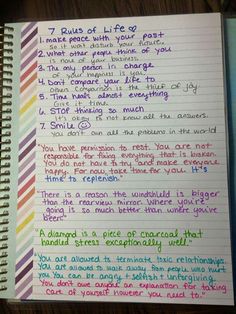 7 Rules of Life ♡
1. make peace with your past
So it wont disturb your future.
2. What other people think of you
is none of your business.
3. The only person in charge
of your happiness is you.
4. Don't compare your life to
others. Comparison is the thief of joy.
5. Time heals almost everything
Give it time.
6. STOP thinking so much
It's okay to not know all the answers.
7. Smile ☺
You don't own all the problems in the world
"You have permission to rest. You are not
responsible for fixing everything that is broken.
You do not have to try and make everyone
happy. For now, take time for you. It's
time to replenish."
"There is a reason the windshield is bigger
than the rearview mirror. Where you're
going is so much better than where you've
been"
"A diamond is a piece of charcoal that
handled stress exceptionally well."
"You are allowed to terminate toxic relationships.
You are allowed to walk away from people who hurt
you. You can be angry + selfish + unforgiving.
You don't owe anyone an explanation for taking
care of yourself however you need to."